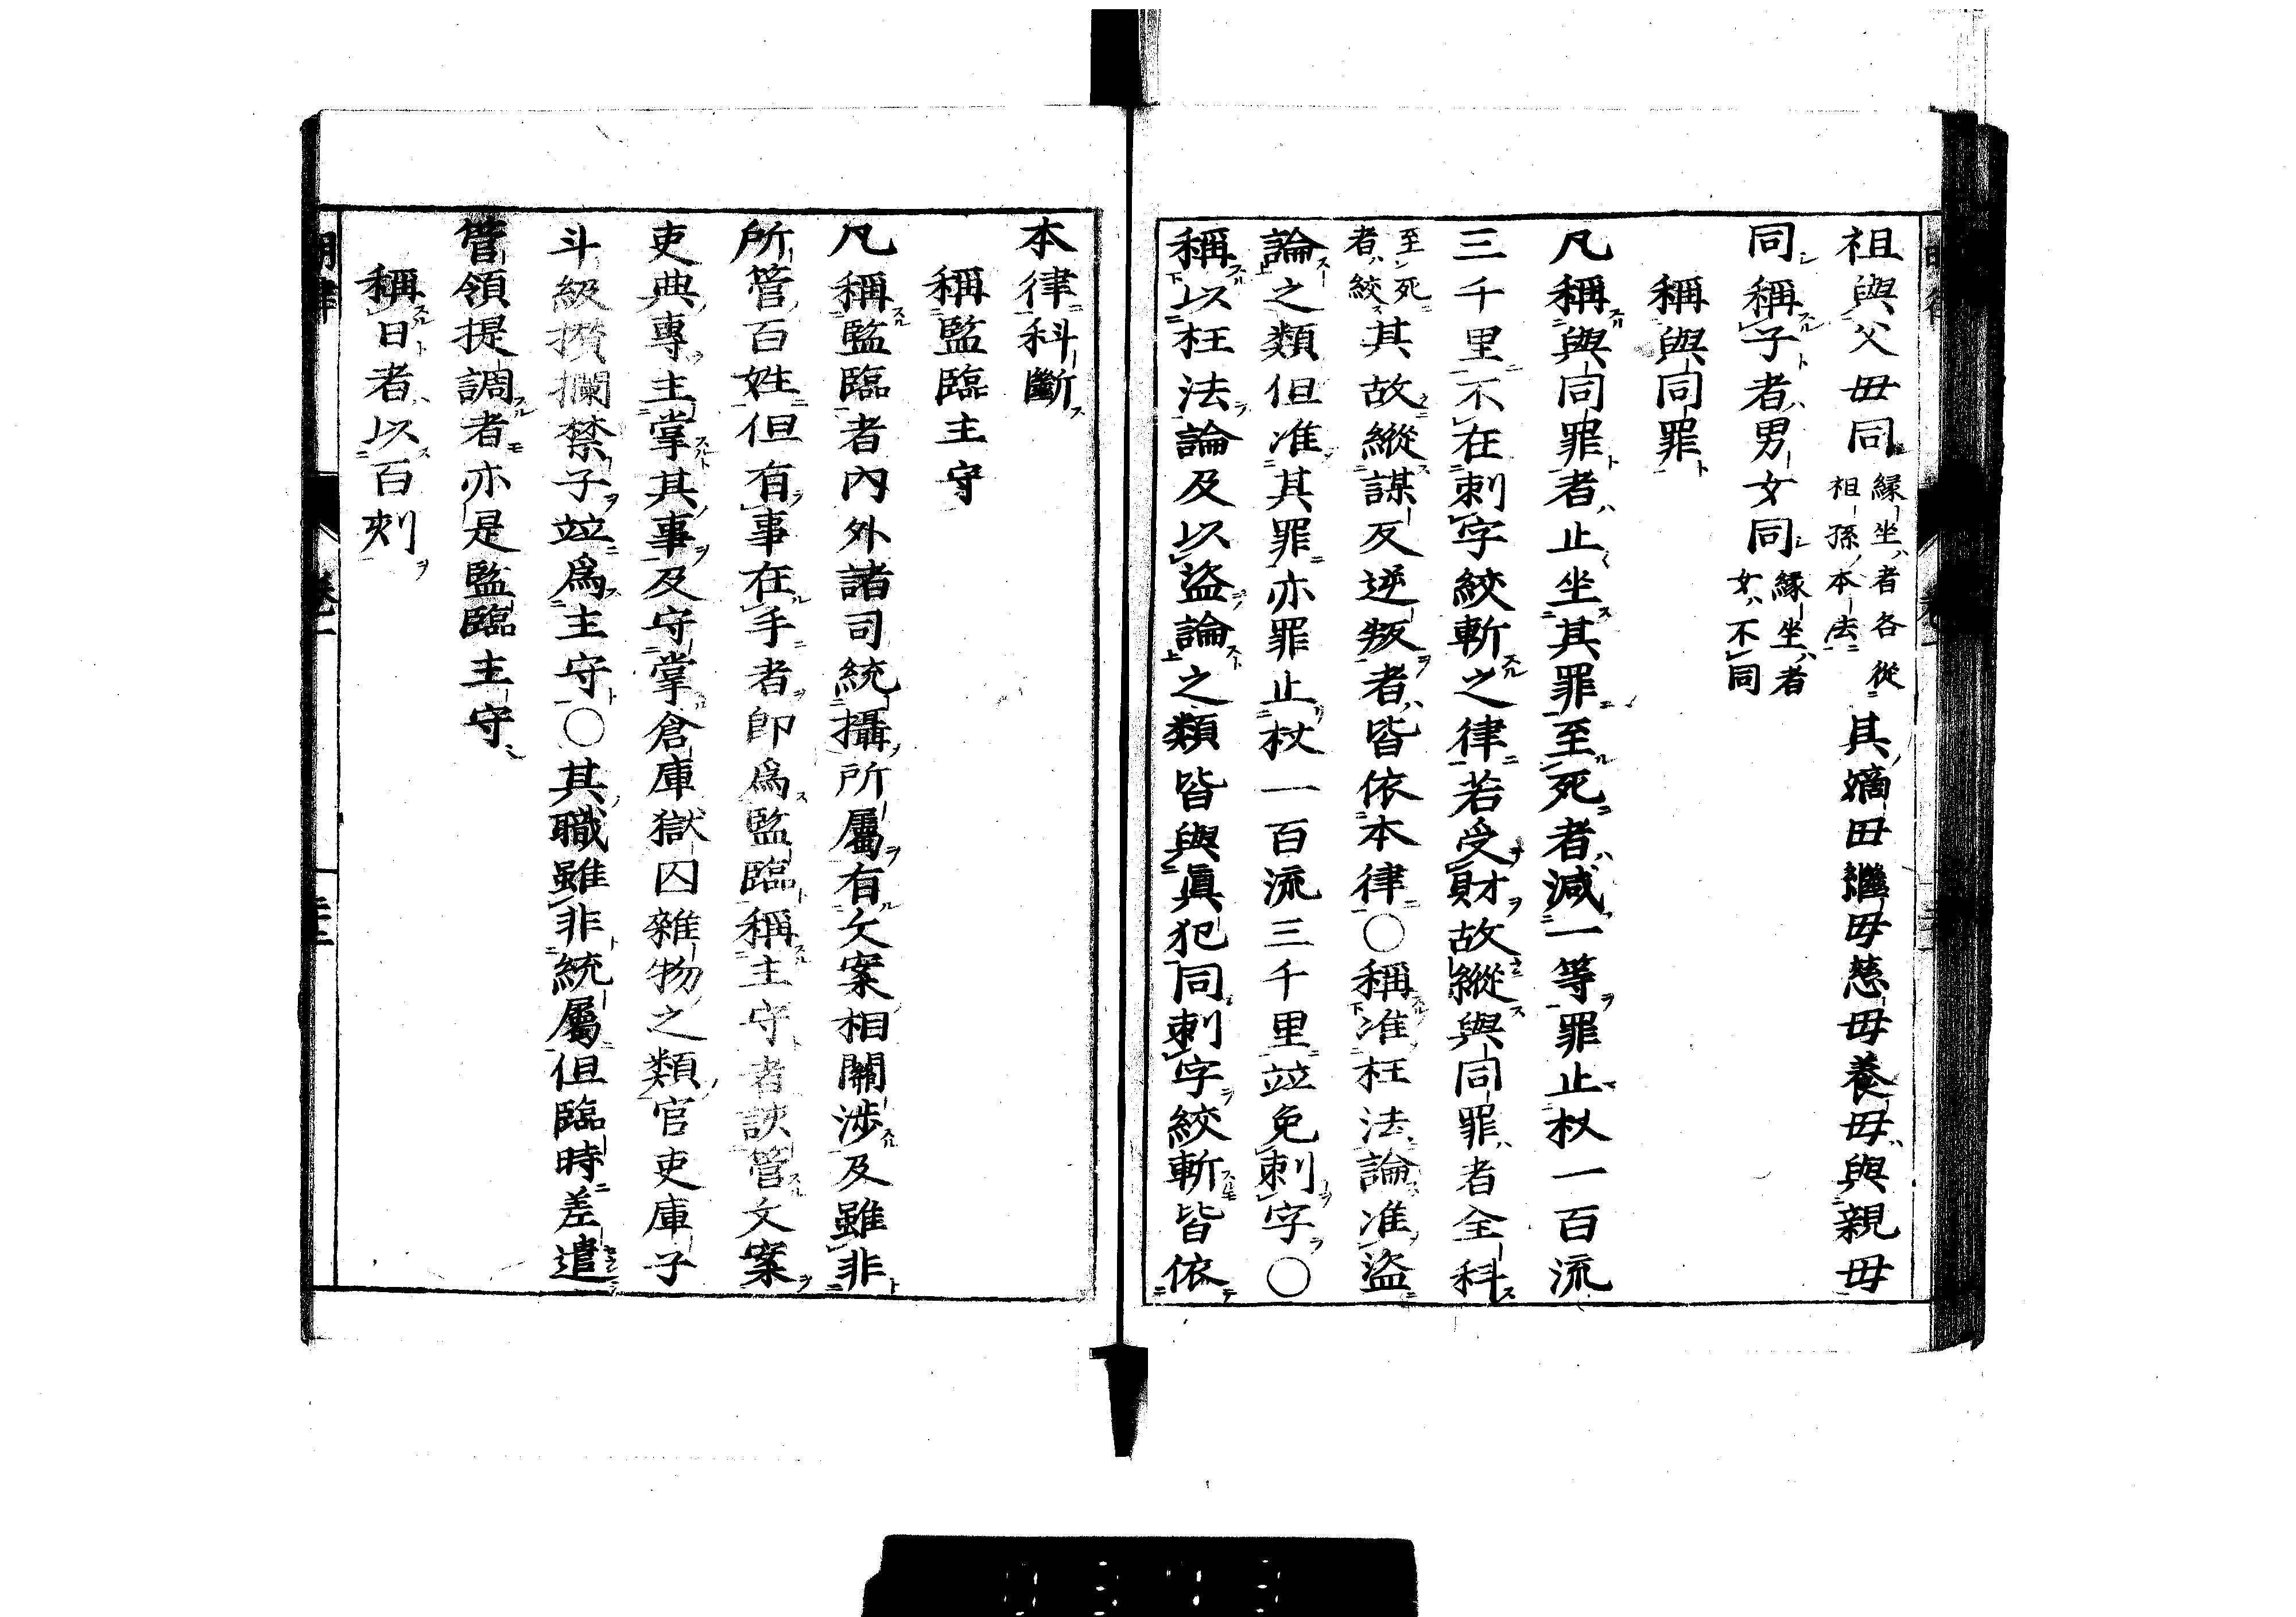 祖與父母同縁坐者各從祖孫本法其嫡母繼母慈母養母與親母
同稱子者男女同縁坐者女不同
稱與同罪
凡稱與同罪者止坐其罪至死者減一等罪止杖一百流
三千里不在刺字絞斬之律若受財故縱與同罪者全科
至死者絞其故縱謀反逆叛者皆依本律〇稱准枉法論准盜
論之類但准其罪亦罪止杖一百流三千里竝免刺字〇
稱以枉法論及以盜論之類皆與眞犯同刺字絞斬皆依
本律科斷
稱監臨主守
凡稱監臨者內外諸司統攝所屬有文案相關涉及雖非
所管百姓但有事在手者卽爲監臨稱主守者該管文案
吏典專主掌其事及守掌倉庫獄囚雜物之類官吏庫子
斗級攢攔禁子竝爲主守〇其職雖非統屬但臨時差遣
管領提調者亦是監臨主守
稱日者以百刻
明律 卷一 二十三